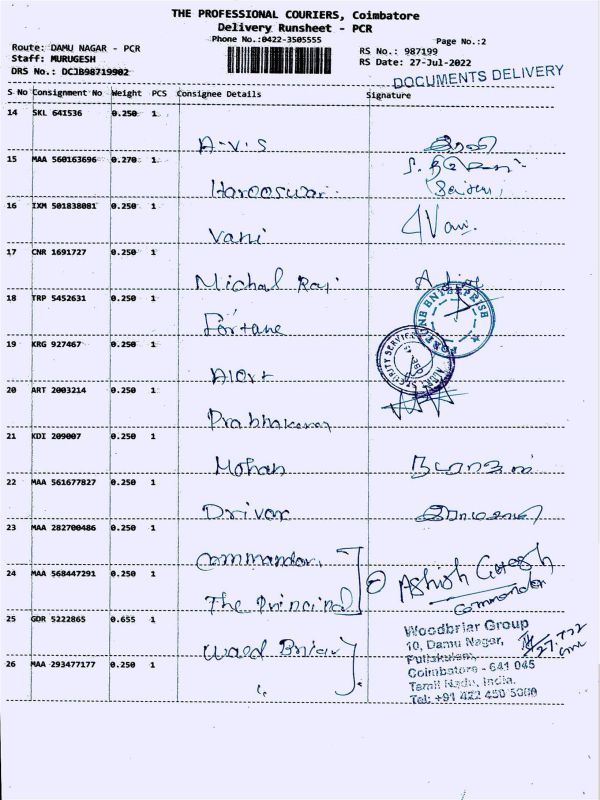 THE PROFESSIONAL COURIERS, Coimbatore
Delivery Runsheet - PCR
Phone No.:0422-3505555
Page No.:2
Route: DAMU NAGAR - PCR
RS No.: 987199
Staff: MURUGESH
RS Date: 27-Jul-2022
DRS No.: DCJB98719902
DOCUMENTS DELIVERY
S No Consignment No Weight PCS Consignee Details Signature
14 SKL 641536 0.250 1
A-V-S
15 MAA 560163696 0.270 1
16 IXM 501838081 0.250 1
Vani Vani.
17 CNR 1691727 0.250 1
Michal Raj
18 TRP 5452631 0.250 1
Fortane
19 KRG 927467 0.250 1
Alert
20 ART 2003214 0.250 1
Prabhakaran
21 KDI 209007 0.250 1
Mohan
22 MAA 561677827 0.250 1
Driver
23 MAA 282700486 0.250 1
Commandar,
24 MAA 568447291 0.250 1
The Principal
Ashish
Commandar
25 GDR 5222865 0.655 1
26 MAA 293477177 0.250 1
Woodbriar Group
10, Damu Nagar,
Puliakulam,
Coimbatore - 641 045
Tamil Nadu, India.
Tel: +91 422 450 5000